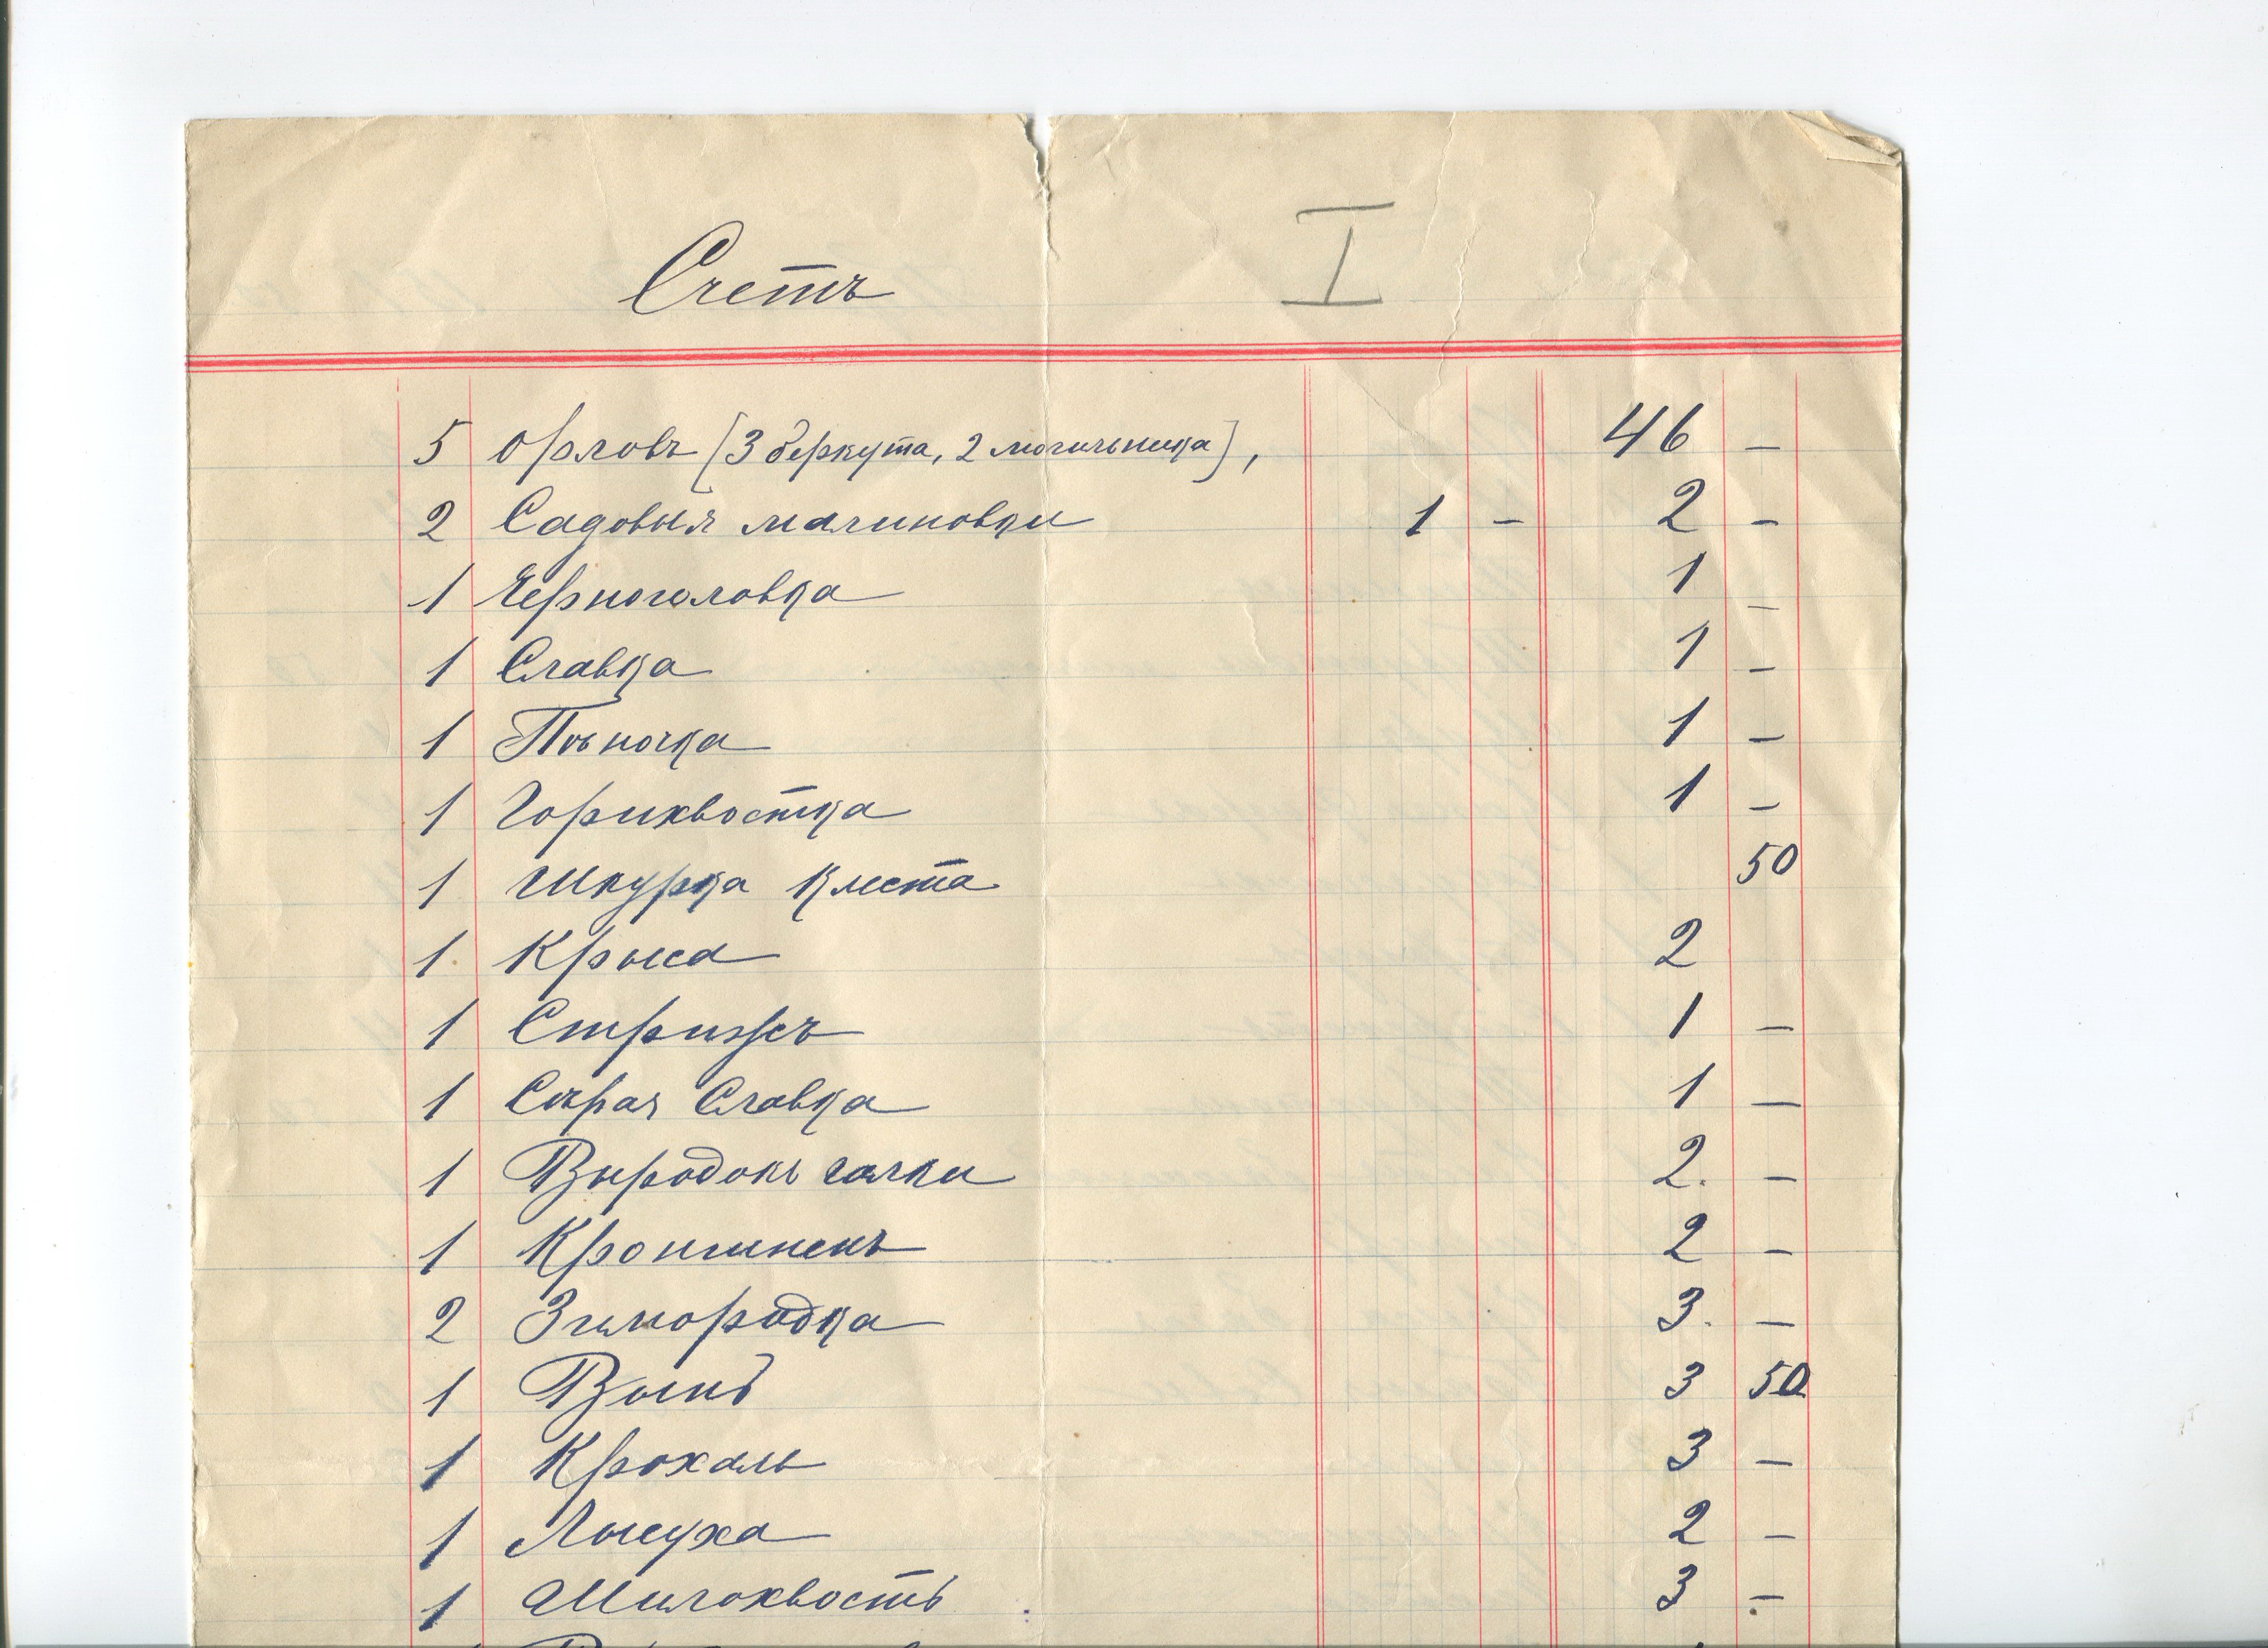 Счетъ I
5 Орловъ [3 беркута, 2 могильника], 46 —
2 Садовыя малиновки 1 — 2 —
1 Черноголовка 1 —
1 Славка 1 —
1 Пѣночка 1 —
1 Горихвостка 1 —
1 Шкурка клеста 50
1 Крыса 2
1 Стрижъ 1 —
1 Сѣрая Славка 1 —
1 Выродокъ галки 2. —
1 Кроншнепъ 2 —
2 Зимородка 3. —
1 Выпь 3 50
1 Крохаль 3 —
1 Лысуха 2 —
1 Шилохвость 3 —